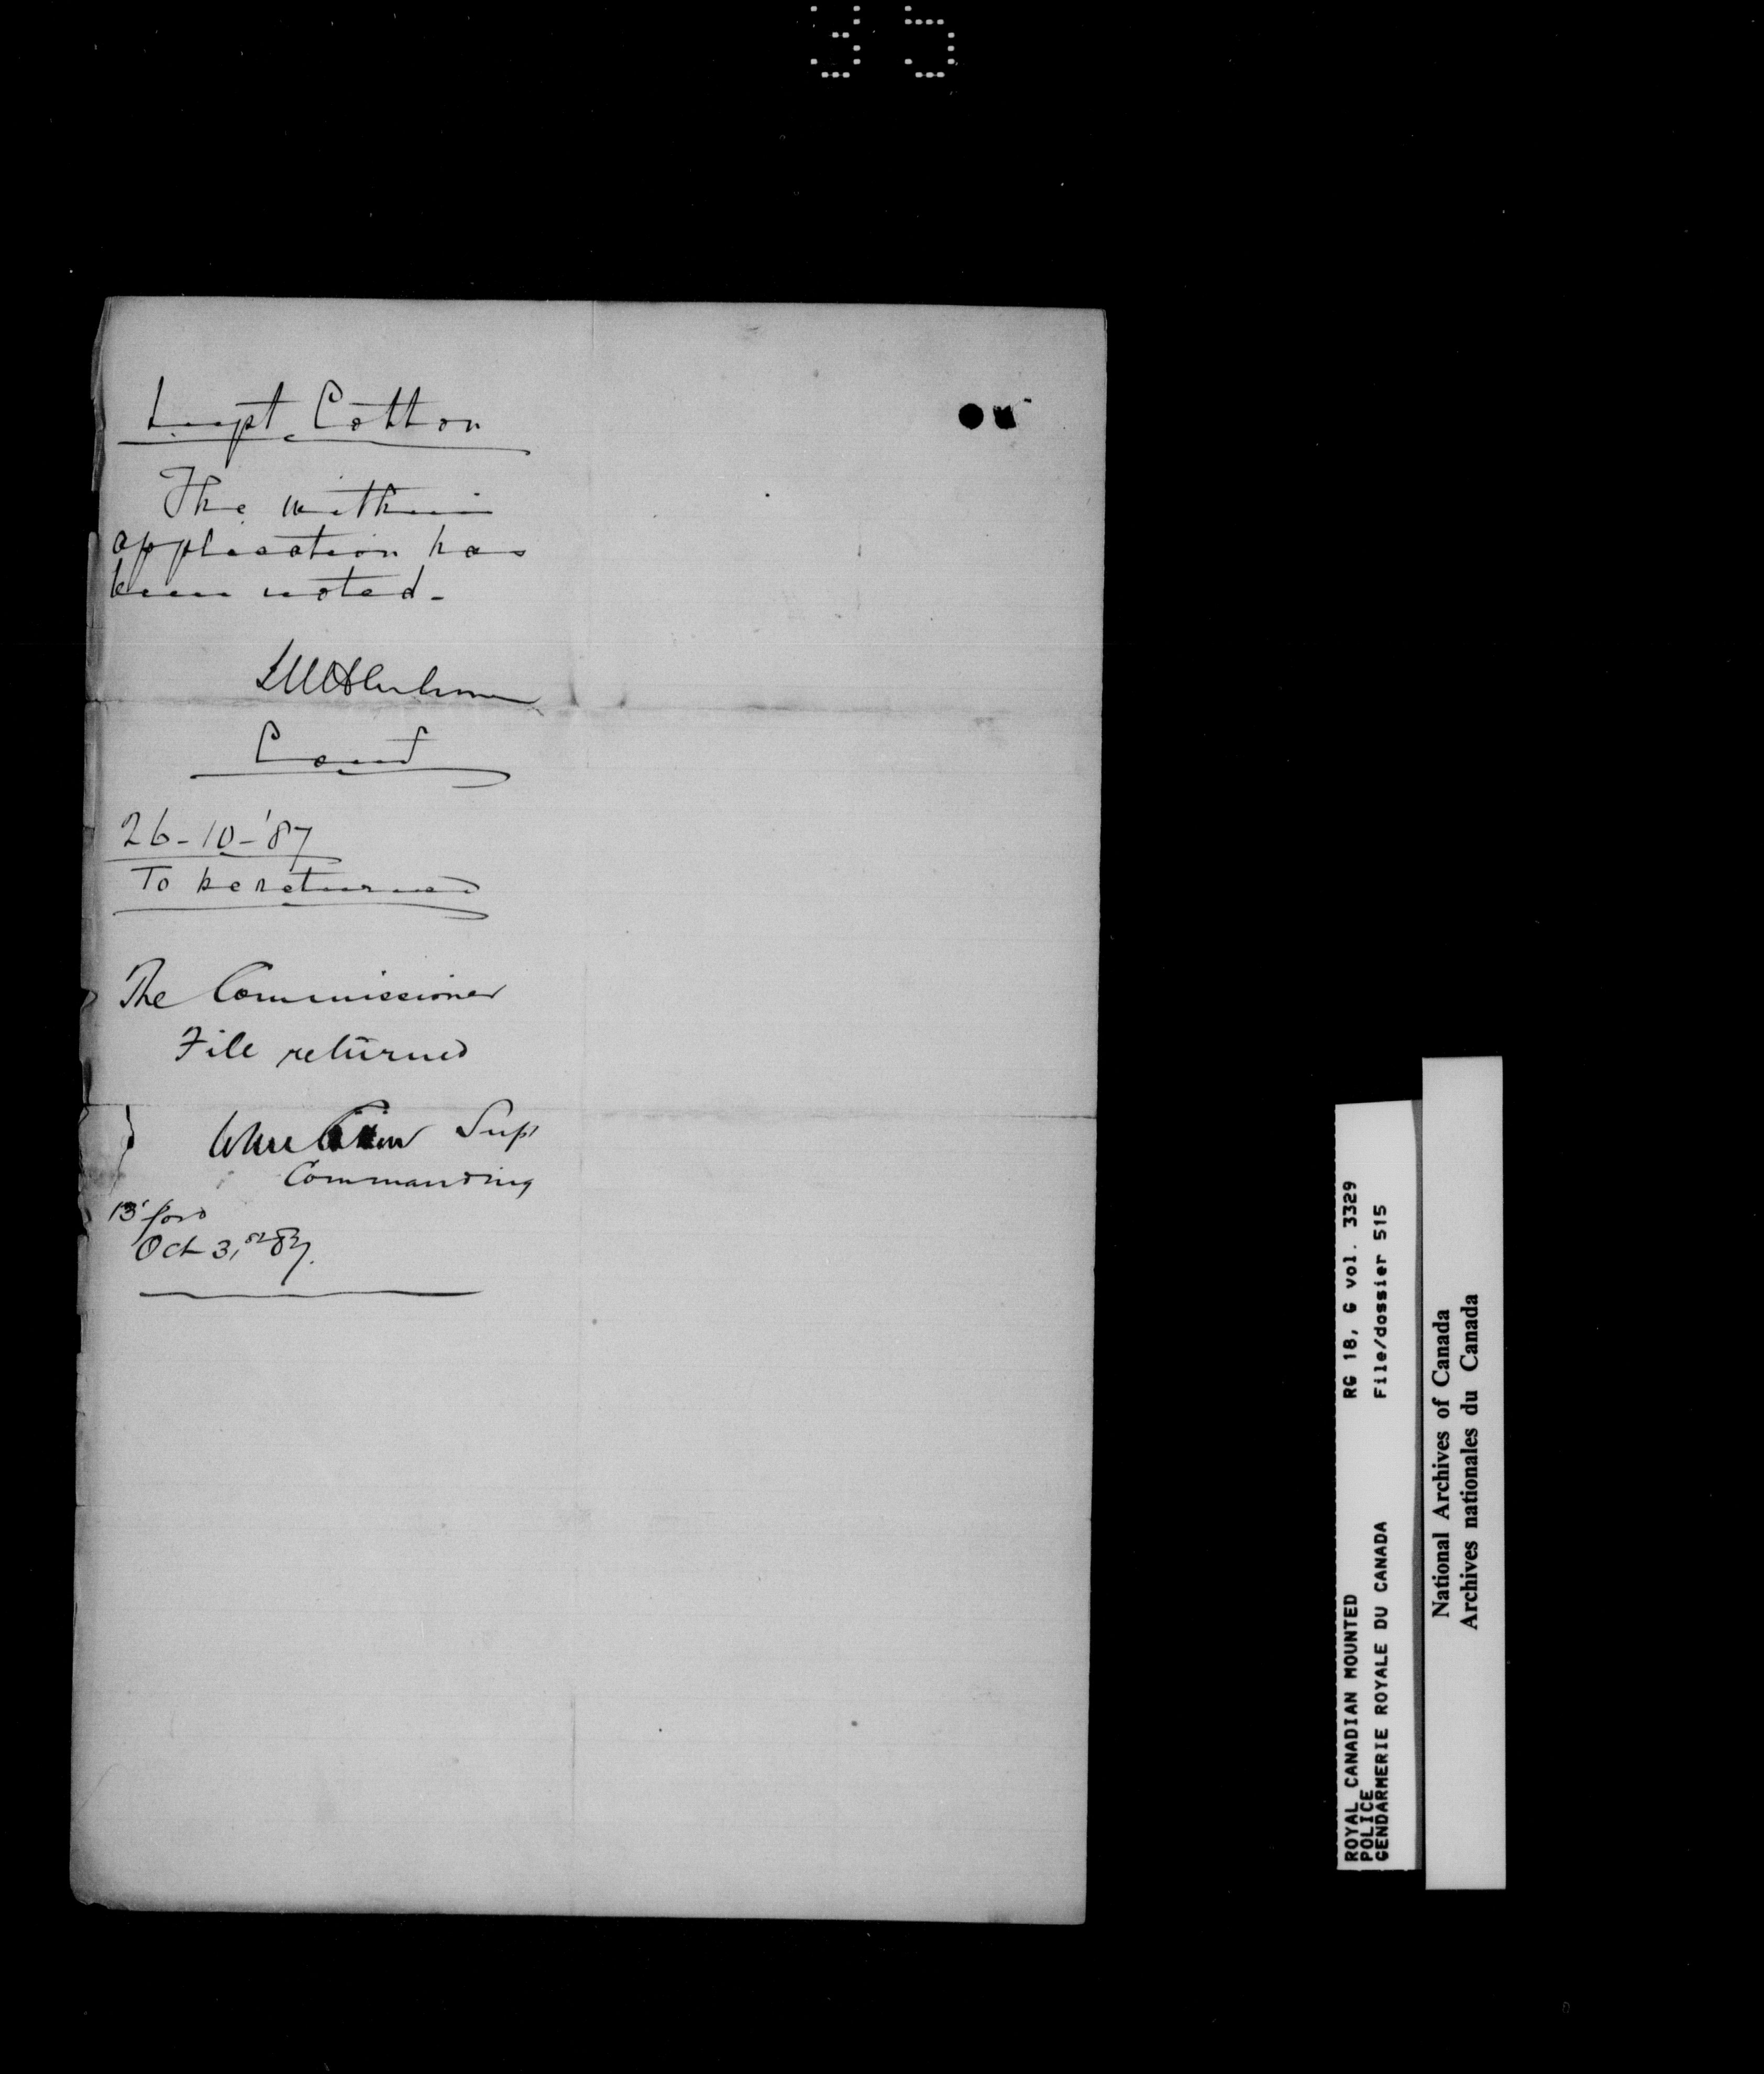 35
Supt. Cotton
The within
application has
been noted.
LWHerchmer
Comr
26-10-'87
To be returned
The Commissioner
File returned
Cotton Supt
Commanding
B'ford
Oct 31st 87.
RG 18, G vol. 3329
File/dossier 515
ROYAL CANADIAN MOUNTED
POLICE
GENDARMERIE ROYALE DU CANADA
National Archives of Canada
Archives nationales du Canada